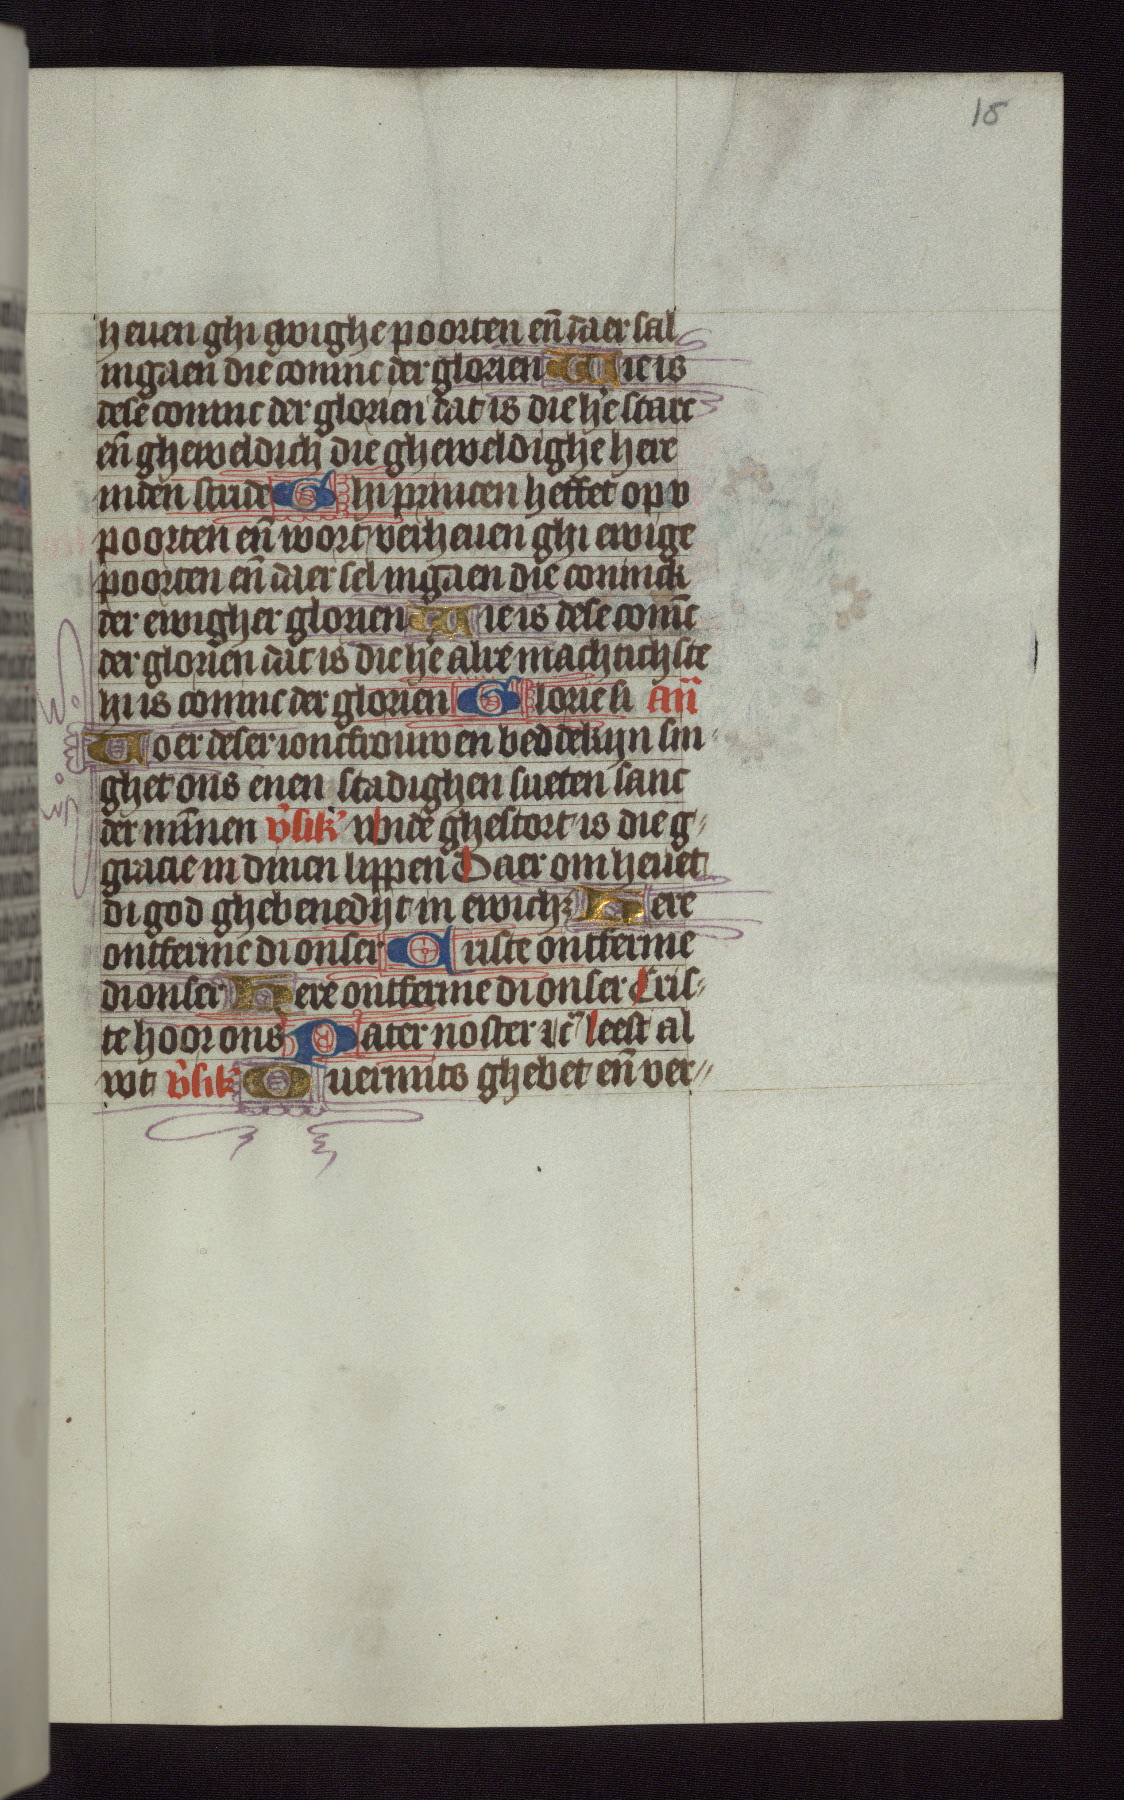 18
heuen ghi ewighe poorten en̄ daer sal
ingaen die coninc der glorien Wie is
dese coninc der glorien dat is die he᷑ starc
en̄ gheweldich die gheweldighe here
inden stride Ghi princen heffet op v
poorten en̄ wort verheuen ghi ewige
poorten en̄ daer sel ingaen die coninck
der ewigher glorien Wie is dese conīc
der glorien dat is die he᷑ alre machtichste
hi is coninc der glorien Glorie si an̄
Voer deser ioncfrouwen beddekijn sin-
ghet ons enen stadighen sueten sanc
der mīnen v̓sik̓ Vnde ghestort is die g-
gracie in dinen lippen Daer om heuet
di god ghebenedijt in ewich Here
ontferme di onser Criste ontferme
di onser Here ontferme di onser Cris-
te hoor ons Pater noster leest al
wt v̓sik̓ Ouermits ghebet en̄ ver-